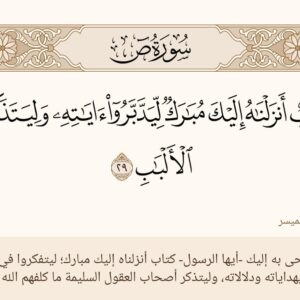 سُورَةُ صٓ
أَنزَلْنَٰهُ إِلَيْكَ مُبَٰرَكٌ لِّيَدَّبَّرُوٓا۟ ءَايَٰتِهِۦ
ٱلْأَلْبَٰبِ ٢٩
ميسر
به إليك -أيها الرسول- كتاب أنزلناه إليك مبارك؛ ليتفكروا في
ودلالاته، وليتذكر أصحاب العقول السليمة ما كلفهم الله